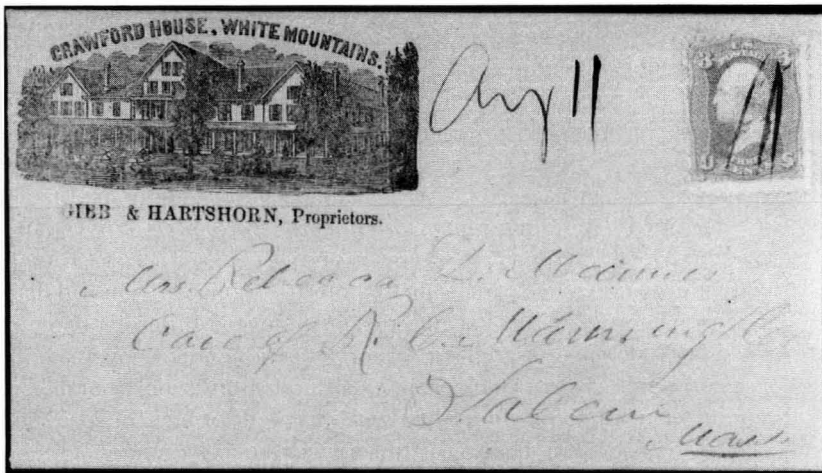 CRAWFORD HOUSE, WHITE MOUNTAINS.
GIBB & HARTSHORN, Proprietors.
Aug 11
3 3
U S
Mrs. Rebecca
Care of R. C. Manning & Co
Salem
Mass